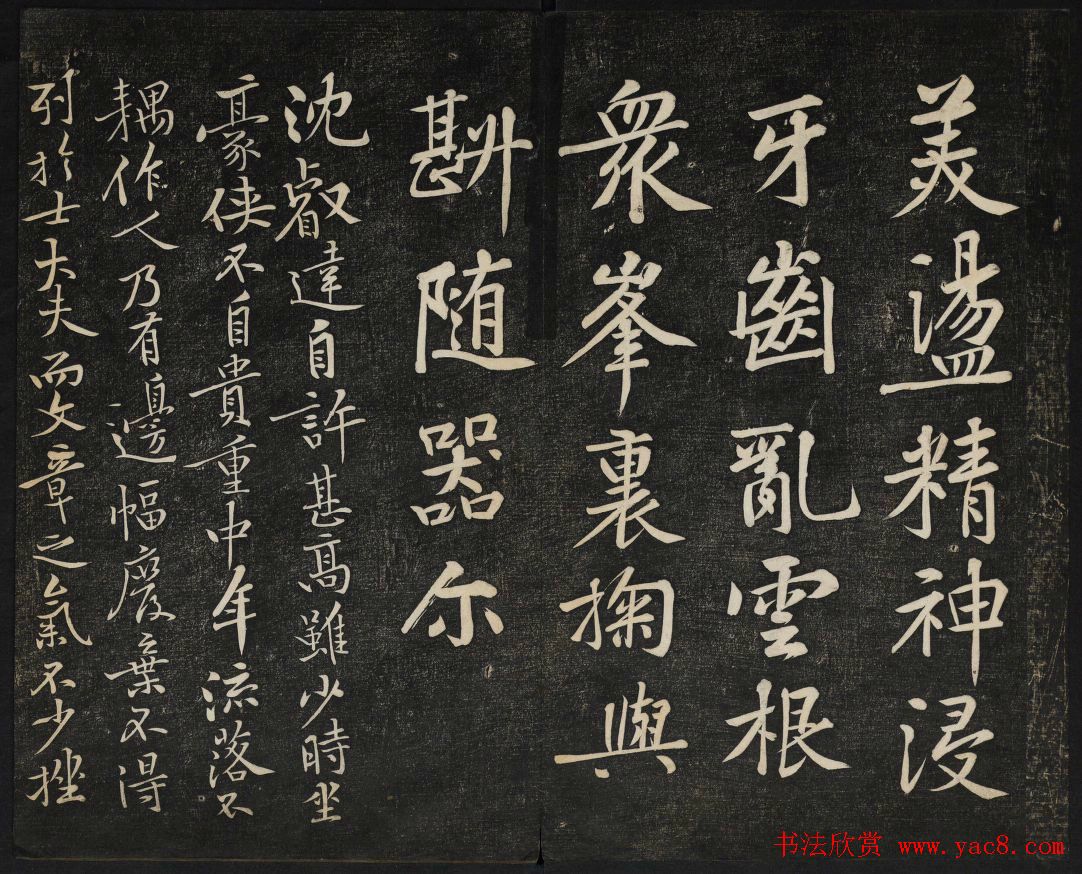 美盪精神浸
牙齒亂雲根
衆峯裏掬與
斟随器尔
沈睿達自許甚高雖少時坐
豪俠不自貴重中年流落不
耦作人乃有邊幅廢棄不得
列於士大夫而文章之氣不少挫
书法欣赏 www.yac8.com